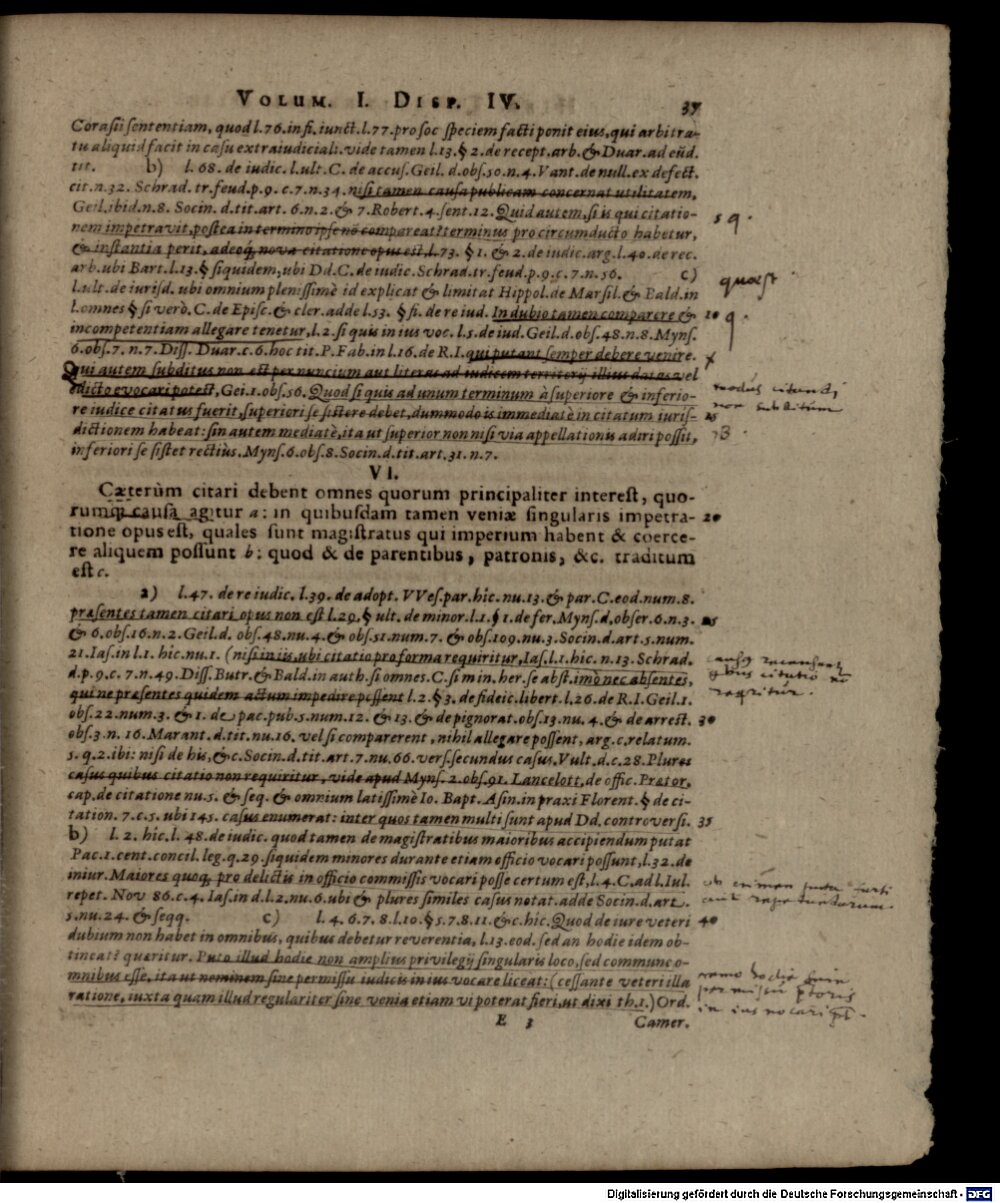 VOLUM. I. DISP. IV. 37
Corasii sententiam, quod l.76. in fi. iunct. l.77. pro soc speciem facti ponit eius, qui arbitra-
tu aliquid facit in casu extraiudiciali. vide tamen l.13. § 2. de recept. arb. & Duar. ad eũd.
tit. b) l. 68. de iudic. l. ult. C. de accus. Geil. d. obs. 50. n. 4. Vant. de null. ex defect.
cit. n. 32. Schrad. tr. feud. p. 9. c. 7. n. 34. nisi tamen causa publicam concernat utilitatem,
Geil. ibid. n. 8. Socin. d. tit. art. 6. n. 2. & 7. Robert. 4. sent. 12. Quid autem, si is qui citatio- 5 q.
nem impetravit, postea in termino ipse nõ compareat? terminus pro circumducto habetur,
& instantia perit, adeoq; nova citatione opus est, l. 73. § 1. & 2. de iudic. arg. l. 40. de rec.
arb. ubi Bart. l. 13. § siquidem, ubi Dd. C. de iudic. Schrad. tr. feud. p. 9. c. 7. n. 56. c)
l. ult. de iurisd. ubi omnium plenissimè id explicat & limitat Hippol. de Marsil. & Bald. in quæst
l. omnes § si verò. C. de Episc. & cler. adde l. 53. § fi. de re iud. In dubio tamen comparere & 10 q.
incompetentiam allegare tenetur, l. 2. si quis in ius voc. l. 5. de iud. Geil. d. obs. 48. n. 8. Myns.
6. obs. 7. n. 7. Diss. Duar. c. 6. hoc tit. P. Fab. in l. 16. de R. I. qui putant semper debere venire.
Qui autem subditus non est per nuncium aut literas ad iudicem territorij illius datas vel
edicto evocari potest, Gei. 1. obs. 56. Quod si quis ad unum terminum à superiore & inferio- modus citandi
re iudice citatus fuerit, superiori se sistere debet, dummodo is immediatè in citatum iuris- 15 non subditum
dictionem habeat: sin autem mediatè, ita ut superior non nisi via appellationis adiri possit,
inferiori se sistet rectius. Myns. 6. obs. 8. Socin. d. tit. art. 31. n. 7.
VI.
Cæterùm citari debent omnes quorum principaliter interest, quo-
rumq; causa agitur a: in quibusdam tamen veniæ singularis impetra- 20
tione opus est, quales sunt magistratus qui imperium habent & coerce-
re aliquem possunt b: quod & de parentibus, patronis, &c. traditum
est c.
a) l. 47. de re iudic. l. 39. de adopt. VVes. par. hic. nu. 13. & par. C. eod. num. 8.
præsentes tamen citari opus non est l. 29. § ult. de minor. l. 1. § 1. de fer. Myns. d. obser. 6. n. 3. 25
& 6. obs. 16. n. 2. Geil. d. obs. 48. nu. 4. & obs. 51. num. 7. & obs. 109. nu. 3. Socin. d. art. 5. num.
21. Ias. in l. 1. hic. nu. 1. (nisi in iis, ubi citatio pro forma requiritur, Ias. l. 1. hic. n. 13. Schrad.
d. p. 9. c. 7. n. 49. Diss. Butr. & Bald. in auth. si omnes. C. si min. her. se abst. imò nec absentes, citatio nõ
qui ne præsentes quidem actum impedire possent l. 2. § 3. de fideic. libert. l. 26. de R. I. Geil. 1. reqritur.
obs. 22. num. 3. & 1. de pac. pub. 5. num. 12. & 13. & de pignorat. obs. 13. nu. 4. & de arrest. 30
obs. 3. n. 16. Marant. d. tit. nu. 16. vel si comparerent, nihil allegare possent, arg. c. relatum.
5. q. 2. ibi: nisi de his, &c. Socin. d. tit. art. 7. nu. 66. vers. secundus casus. Vult. d. c. 28. Plures
casus quibus citatio non requiritur, vide apud Myns. 2. obs. 91. Lancelott. de offic. Prætor.
cap. de citatione nu. 5. & seq. & omnium latissimè Io. Bapt. Asin. in praxi Florent. § de ci-
tation. 7. c. 5. ubi 145. casus enumerat: inter quos tamen multi sunt apud Dd. controversi. 35
b) l. 2. hic. l. 48. de iudic. quod tamen de magistratibus maioribus accipiendum putat
Pac. 1. cent. concil. leg. q. 29. siquidem minores durante etiam officio vocari possunt, l. 32. de
iniur. Maiores quoq; pro delictis in officio commissis vocari posse certum est, l. 4. C. ad l. Iul.
repet. Nov 86. c. 4. Ias. in d. l. 2. nu. 6. ubi & plures similes casus notat. adde Socin. d. art.
5. nu. 24. & seqq. c) l. 4. 6. 7. 8. l. 10. § 5. 7. 8. 11. & c. hic. Quod de iure veteri 40
dubium non habet in omnibus, quibus debetur reverentia, l. 13. eod. sed an hodie idem ob-
tineat? quæritur. Puto illud hodie non amplius privilegij singularis loco, sed commune o-
mnibus esse, ita ut nominem sine permissu iudicis in ius vocare liceat: (cessante veteri illa nemo hodie sine
ratione, iuxta quam illud regulariter sine venia etiam vi poterat fieri, ut dixi th. 1.) Ord. permissu ptoris
E 3 Camer. in ius vocari pt.
Digitalisierung gefördert durch die Deutsche Forschungsgemeinschaft - DFG